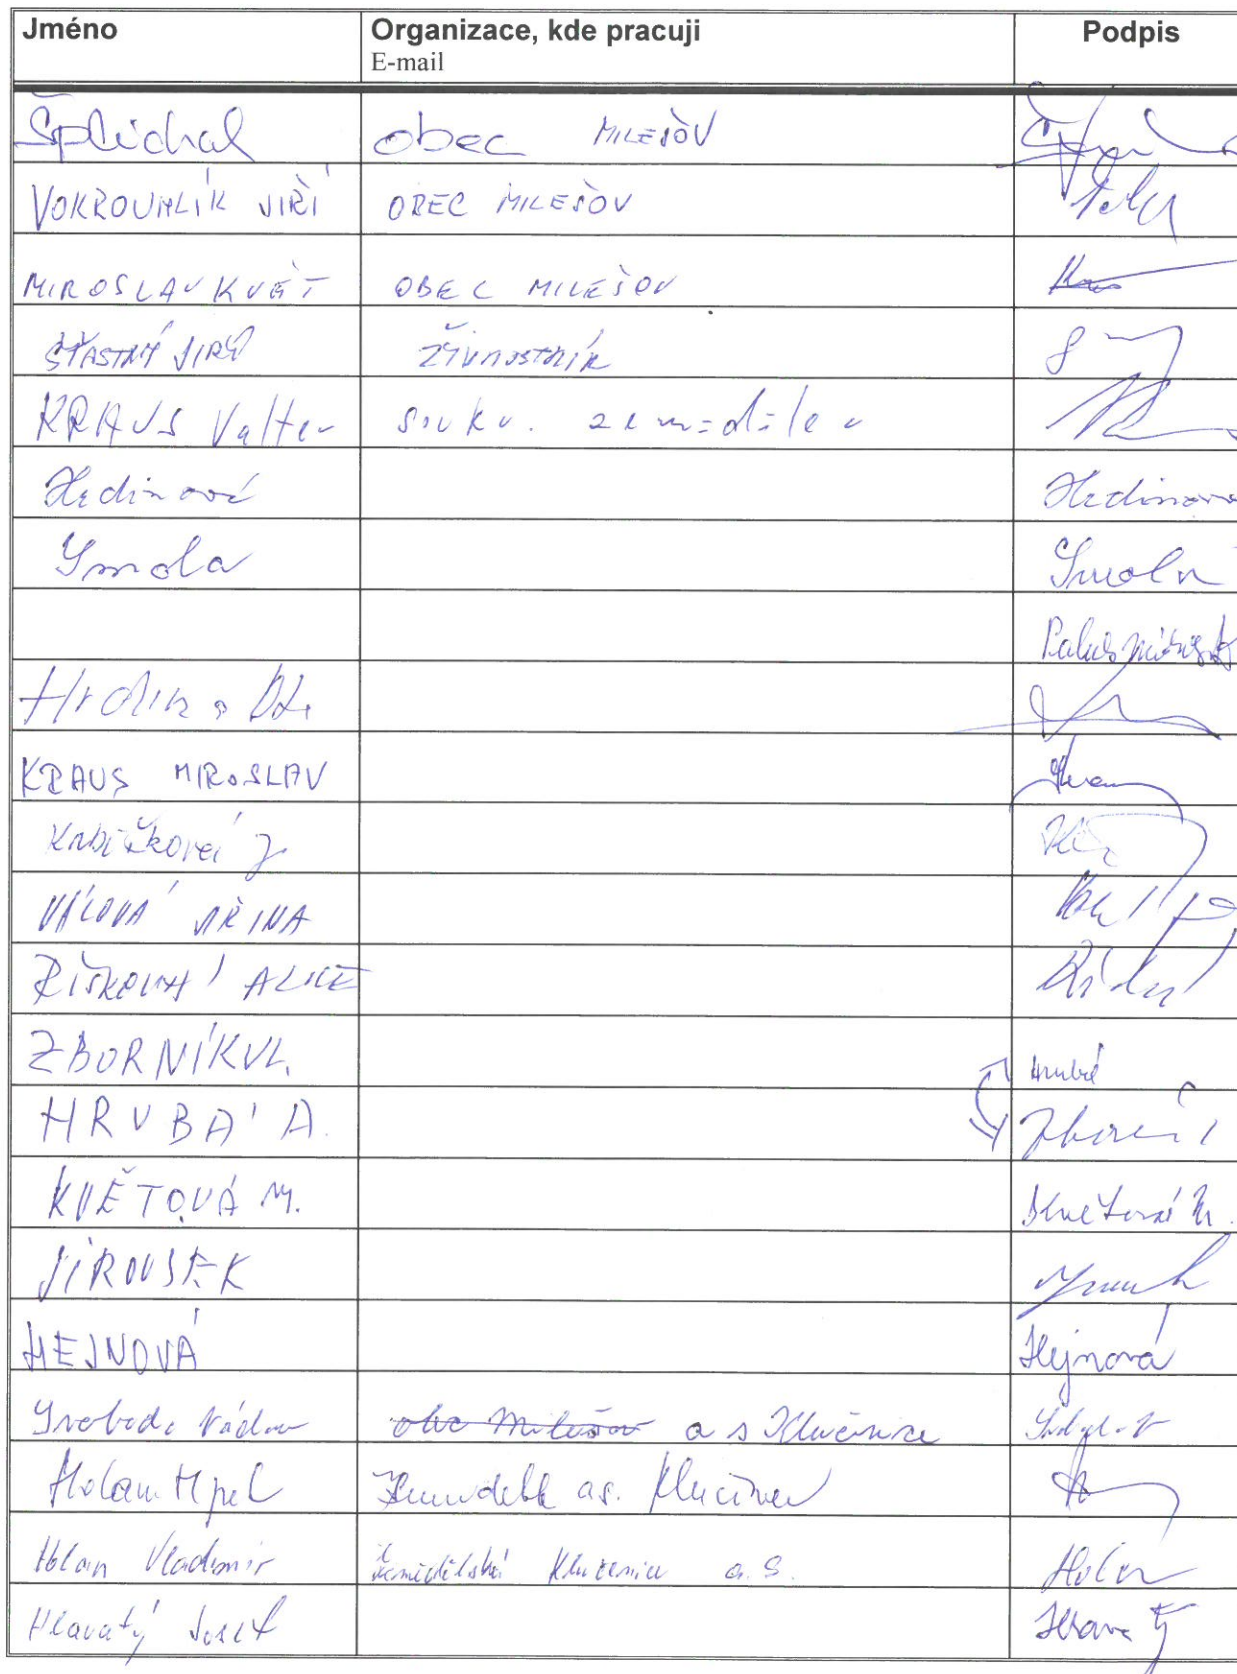 Jméno Organizace, kde pracuji Podpis
E-mail
Šplíchal obec MILEŠOV
VOKROUHLÍK JIŘÍ OBEC MILEŠOV
MIROSLAV KVĚT OBEC MILEŠOV
ŠŤASTNÝ JIŘÍ ŽIVNOSTNÍK
KRAUS Valter soukr. zemědělec
Hrdinová Hrdinová
Smola Smola
Hrdina
KRAUS MIROSLAV
Krbičková J
VÁLOVÁ JIŘINA
ALICE
ZBORNÍK VL. Hrubá
HRUBÁ A. Zborník
KVĚTOVÁ M. Květová M.
JIROUSEK
HEJNOVÁ Hejnová
Svoboda Václav obec Milešov a s Klučenice
Holan Klučenice
Holan Vladimír zemědělská Klučenice a.s. Holan
Hlavatý Josef Hlavatý